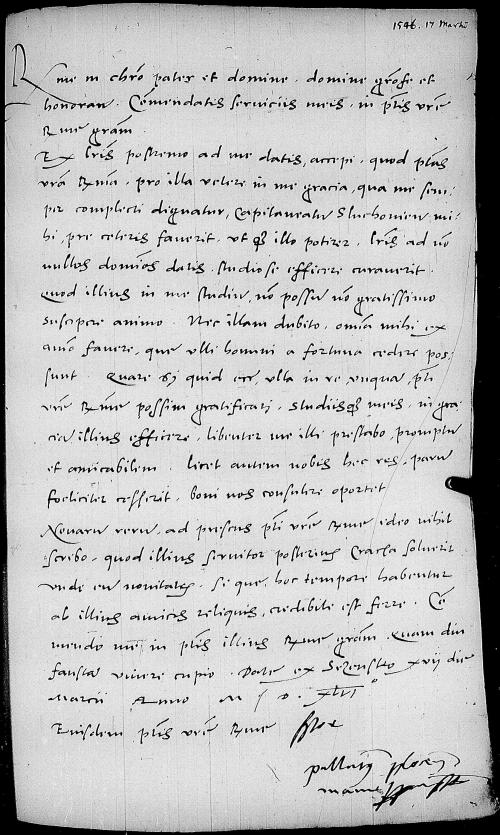 1546. 17 Martii
Rme in chro pater et domine. domine grose et
honoran. Comendatis serviciis meis. in ptis vre
Rme gram.
Ex lris postremo ad me datis, accepi. quod ptas
vra Rma. pro illa vetere in me gracia, qua me sem-
per complecti dignatur, Capitaneatu Sluchovien mi-
hi, pre ceteris faverit. ut illo potirer. lris ad no
nullos dominos datis. studiose efficere curaverit.
quod illius in me studiu, no possu no gratissimo
suscipere animo. Nec illam dubito, omia mihi ex
aio favere, que ulli homini a fortuna cedere pos-
sunt. Quare si quid est, ulla in re unqua, pti
vre Rme possim gratificari. studiisqz meis. in gra-
cia illius efficere. libenter me illi prestabo, promptu
et amicabilem. licet autem nobis hec res, paru
foeliciter cesserit. boni nos consulere oportet
Novaru reru, ad presens pti vre Rme ideo nihil
scribo. quod illius servitor posterius Cracia solverit
unde eu novitates. Se que, hoc tempore habentur
ab illius amicis reliquis, credibile est ferre. Co
mendo me in ptis illius Rme gram. Quam diu
fausta vivere cupio. Date ex xvii die
Marcii Anno M D XLVI
Eiusdem ptis vre Rme
manu